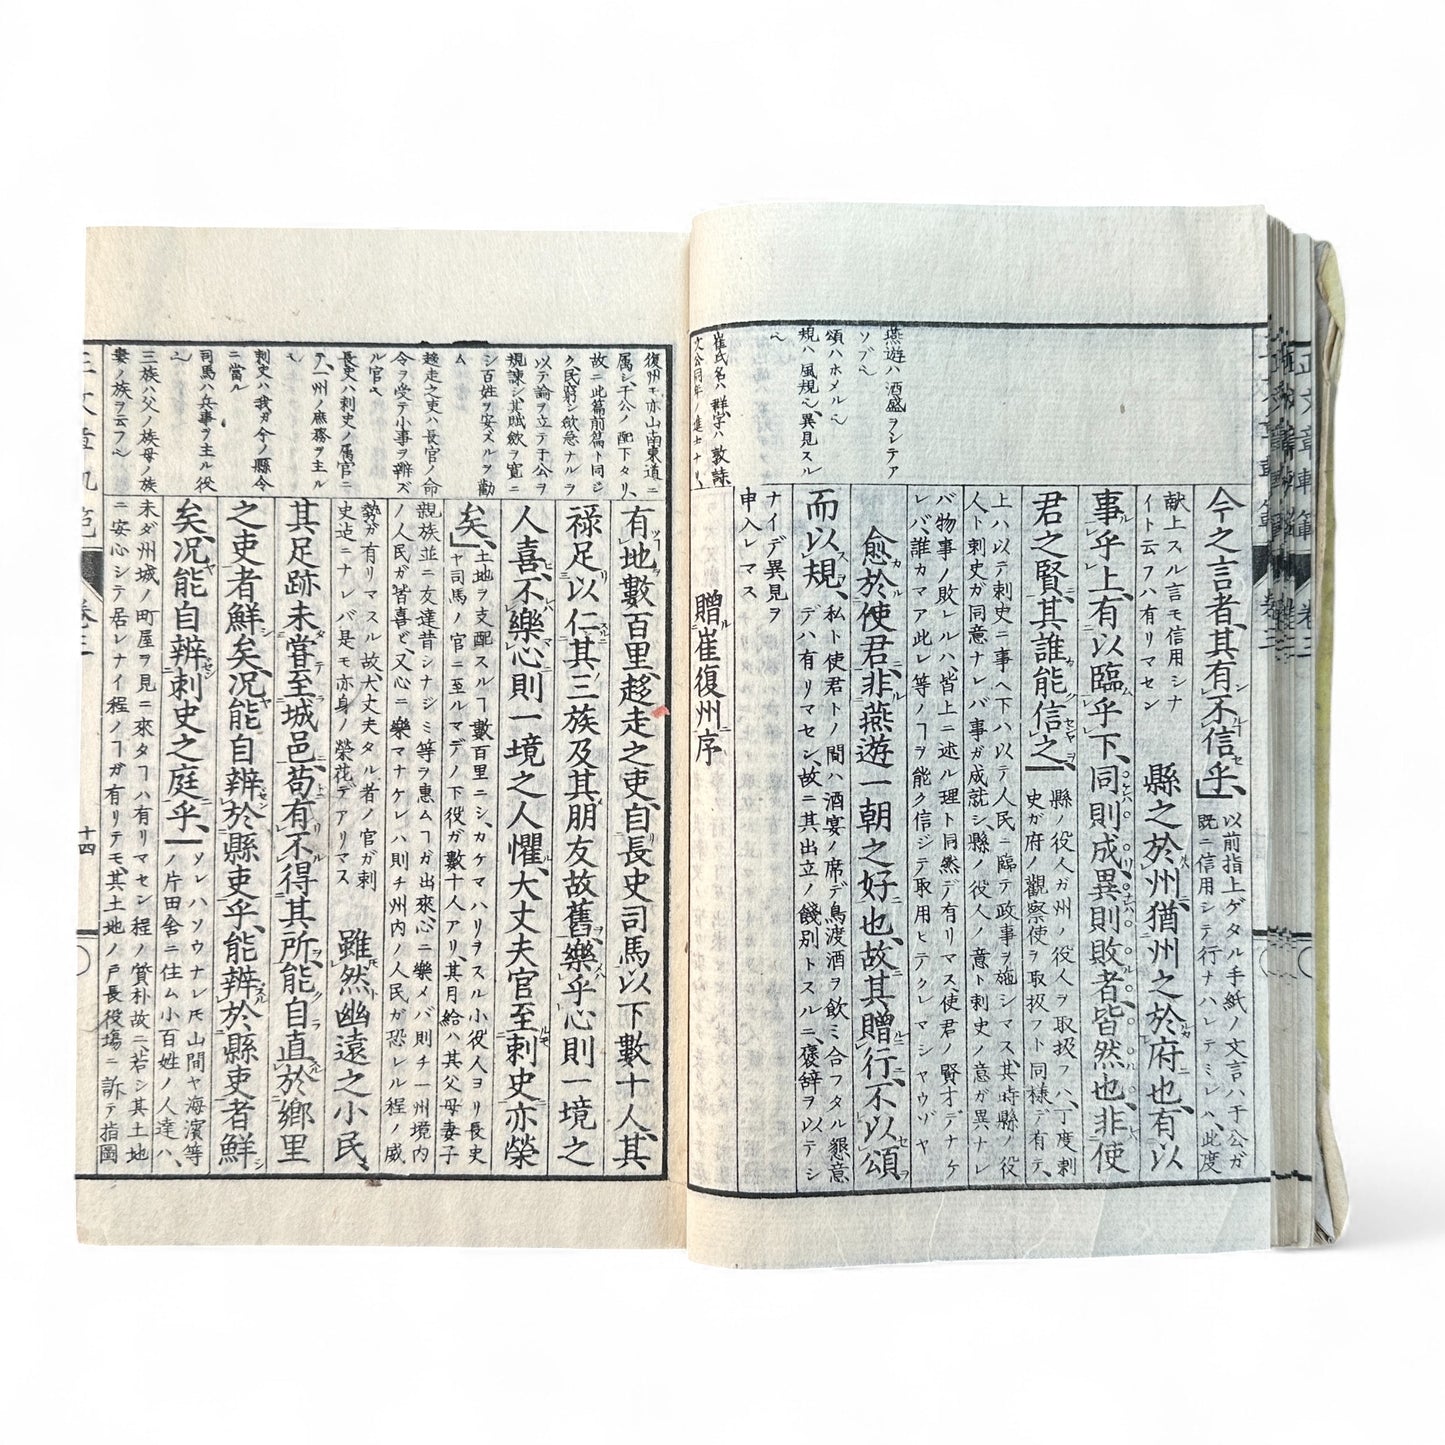 燕遊ハ酒盛ヲシテア
ソブヘ
頌ハホメルヘ
規ハ風規ヘ異見スル
ヘ
崔氏名ハ群字ハ敦詠
今之言者其有不信乎
以前指上ゲタル手紙ノ文言ハ于公ガ
既ニ信用シテ行ナハレテミレハ此度
献上スル言モ信用シナ
イト云フハ有リマセン
縣之於州猶州之於府也有以
事乎上有以臨乎下同則成異則敗者皆然也非使
君之賢其誰能信之
縣ノ役人ガ州ノ役人ヲ取扱フハ丁度刺
史ガ府ノ觀察使ヲ取扱フト同様デ有テ
上ハ以テ刺史ニ事ヘ下ハ以テ人民ニ臨テ政事ヲ施シマス其時縣ノ役
人ト刺史ガ同意ナレバ事ガ成就シ縣ノ役人ノ意ト刺史ノ意ガ異ナレ
バ物事ノ敗レルハ皆上ニ述ル理ト同然デ有リマス使君ノ賢才デナケ
レバ誰カマア此レ等ノヿヲ能ク信ジテ取用ヒテクレマシャウゾヤ
愈於使君非燕遊一朝之好也故其贈行不以頌
而以規
私ト使君トノ間ハ酒宴ノ席デ鳥渡酒ヲ飲ミ合フタル懇意
デハ有リマセン故ニ其出立ノ餞別トスルニ褒辞ヲ以テシ
ナイデ異見ヲ
申入レマス
贈崔復州序
復州モ亦山南東道ニ
属シ于公ノ配下タリ
故ニ此篇前篇ト同シ
ク民窮シ斂急ナルヲ
以テ論ヲ立テ于公ヲ
規諫シ其賦斂ヲ寛ニ
シ百姓ヲ安ズルヲ勸
ム
趍走之吏ハ長官ノ命
令ヲ受テ小事ヲ辨ズ
ル官ヘ
長史ハ刺史ノ属官ニ
テ州ノ庶務ヲ主ル
ヘ
刺史ハ我ガ今ノ縣令
ニ當ル
司馬ハ兵事ヲ主ル役
ヘ
三族ハ父ノ族母ノ族
妻ノ族ヲ云フヘ
有地數百里趍走之吏自長史司馬以下數十人其
祿足以仁其三族及其朋友故舊樂乎心則一境之
人喜不樂心則一境之人懼大丈夫官至刺史亦榮
矣
土地ヲ支配スルヿ數百里ニシカケマハリヲスル小役人ヨリ長史
ヤ司馬ノ官ニ至ルマデノ下役ガ數十人アリ其月給ハ其父母妻子
親族並ニ友達昔シナジミ等ヲ惠ムヿガ出來心ニ樂メバ則チ一州境内
ノ人民ガ皆喜ビ又心ニ樂マナケレハ則チ州内ノ人民ガ恐レル程ノ威
勢ガ有リマスル故大丈夫タル者ノ官ガ刺
史迠ニナレバ是モ亦身ノ榮花デアリマス
雖然幽遠之小民
其足跡未嘗至城邑苟有不得其所能自直於鄉里
之吏者鮮矣況能自辨於縣吏乎能辨於縣吏者鮮
矣況能自辨刺史之庭乎
ソレハソウナレモ山間ヤ海濱等
ノ片田舎ニ住ム小百姓ノ人達ハ
未ダ州城ノ町屋ヲ見ニ來タヿハ有リマセン程ノ貭朴故ニ若シ其土地
ニ安心シテ居レナイ程ノヿガ有リテモ其土地ノ戸長役場ニ訴テ指圖
卷三
十四